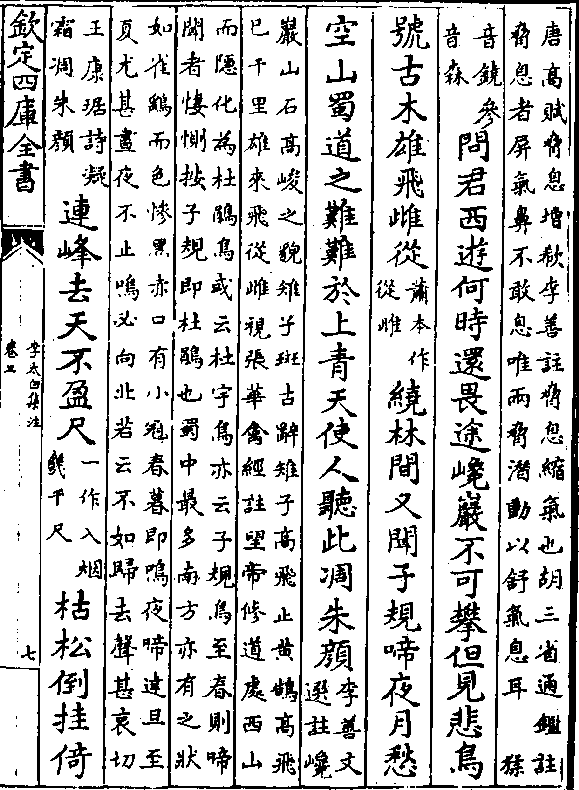 唐高賦脅息增欷李善註脅息縮氣也胡三省通鑑註
脅息者屏氣鼻不敢息唯兩脅潜動以舒氣息耳　猱
音鐃參
音森
問君西遊何時還畏途巉巖不可攀但見悲鳥
號古木雄飛雌從
蕭本作
從雌
繞林間又聞子規啼夜月愁
空山蜀道之難難於上青天使人聽此凋朱顔
李善文
選註巉
巖山石高峻之貌雉子斑古辭雉子高飛止黄鵠高飛
已千里雄來飛從雌視張華禽經註望帝修道處西山
而隱化為杜鵑鳥或云杜宇鳥亦云子規鳥至春則啼
聞者悽惻按子規即杜鵑也蜀中最多南方亦有之狀
如雀鷂而色慘黑赤口有小冠春暮即鳴夜啼達旦至
夏尤甚晝夜不止鳴必向北若云不如歸去聲甚哀切
王康琚詩凝
霜凋朱顔
連峰去天不盈尺
一作入烟
幾千尺
枯松倒挂倚
欽定四庫全書
李太白集注
卷三
七